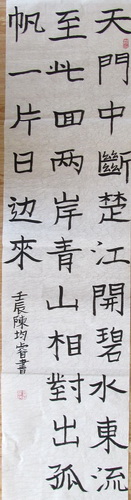 天門中斷楚江開碧水東流
至此回两岸青山相對出孤
帆一片日边來
壬辰陳均睿書